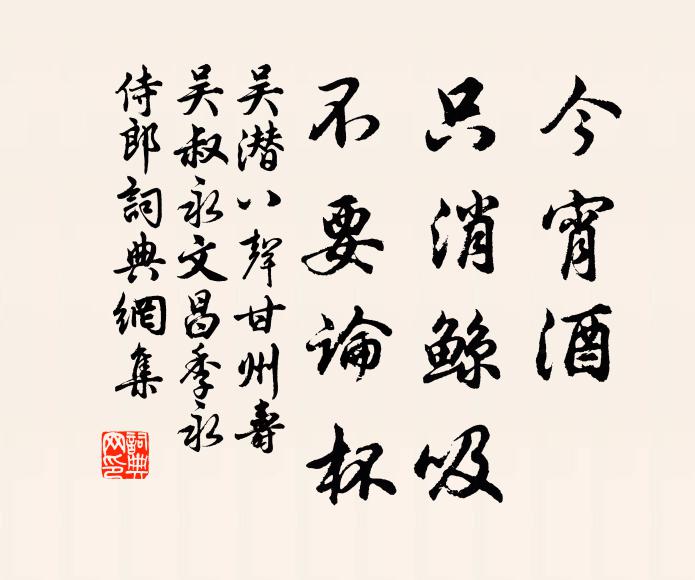 今宵酒
只消鲸吸
不要论杯
吴潜八聲甘州壽
吴叔永文昌季永
侍郎詞典網集
詞典网印